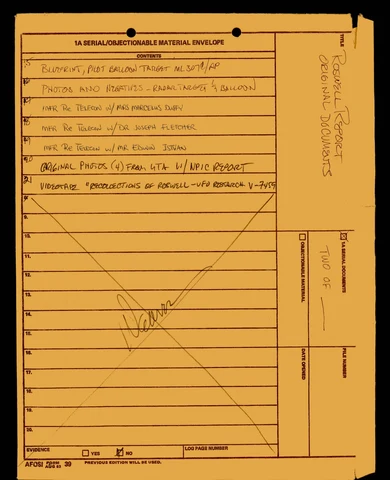 1A SERIAL/OBJECTIONABLE MATERIAL ENVELOPE
CONTENTS
BLUEPRINT, PILOT BALLOON TARGET ML 307B/AP
PHOTOS AND NEGATIVES - RADAR TARGET & BALLOON
MFR Re TELECON W/ MRS MARCELLUS DUFFY
MFR Re TELECON W/ DR JOSEPH FLETCHER
MFR Re TELECON W/ MR EDWIN ISTVAN
ORIGINAL PHOTOS (4) FROM UTA W/ NPIC REPORT
VIDEOTAPE "RECOLLECTIONS OF ROSWELL - UFO RESEARCH
10.
11.
12.
13.
14.
15.
16.
17.
18.
19.
20.
EVIDENCE
YES
NO
LOG PAGE NUMBER
AFOSI FORM 39
PREVIOUS EDITION WILL BE USED.
TITLE
ROSWELL REPORT
ORIGINAL DOCUMENTS
1A SERIAL DOCUMENTS
OBJECTIONABLE MATERIAL
TWO OF
FILE NUMBER
DATE OPENED